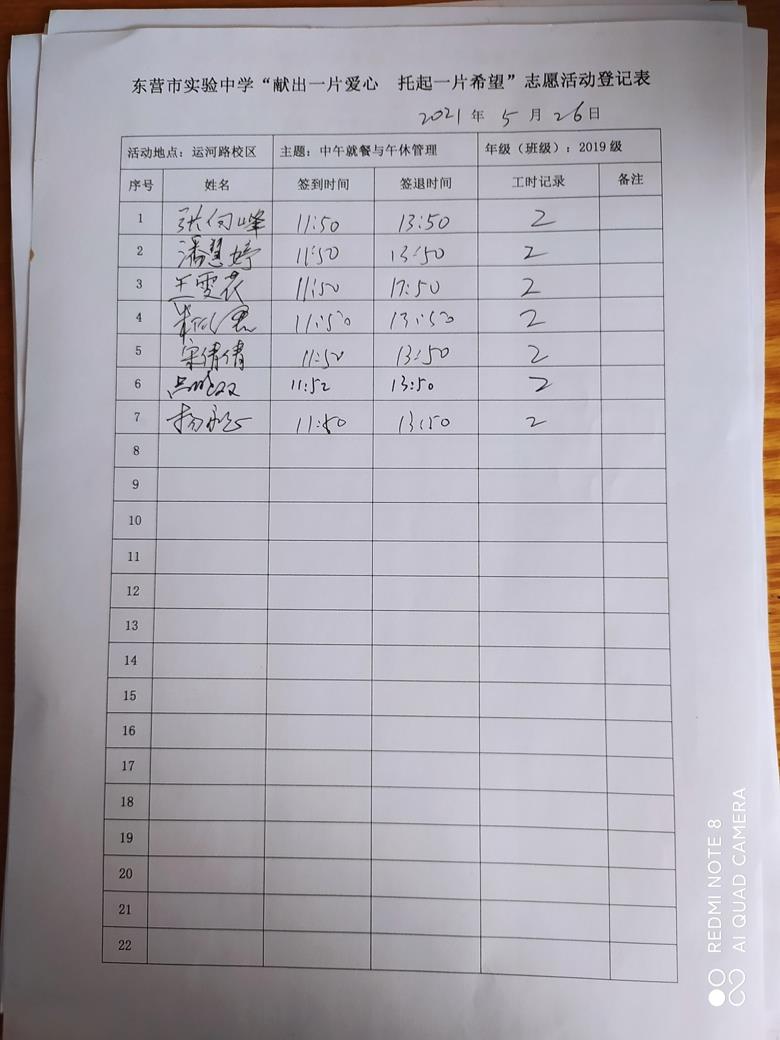 东营市实验中学“献出一片爱心 托起一片希望”志愿活动登记表
2021年 5 月 26日
活动地点：运河路校区 主题：中午就餐与午休管理 年级（班级）：2019 级
序号 姓名 签到时间 签退时间 工时记录 备注
1 张向峰 11:50 13:50 2
2 潘慧婷 11:50 13:50 2
3 王雪花 11:50 17:50 2
4 11:50 13:50 2
5 宋倩倩 11:50 13:50 2
6 11:52 13:50 2
7 杨 11:50 13:50 2
8
9
10
11
12
13
14
15
16
17
18
19
20
21
22
REDMI NOTE 8
AI QUAD CAMERA